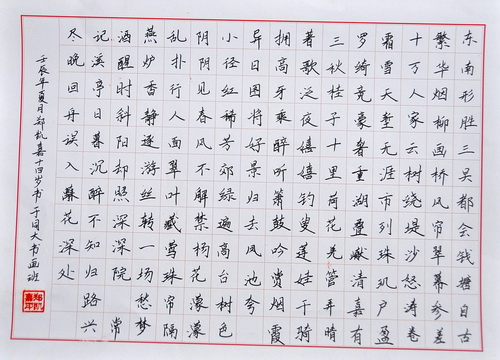 东南形胜三吴都会钱塘自古
繁华烟柳画桥风帘翠幕参差
十万人家云树绕堤沙怒涛卷
霜雪天堑无涯市列珠玑户盈
罗绮竞豪奢重湖叠巘清嘉有
三秋桂子十里荷花羌管弄晴
菱歌泛夜嬉嬉钓叟莲娃千骑
拥高牙乘醉听箫鼓吟赏烟霞
异日图将好景归去凤池夸
小径红稀芳郊绿遍高台树色
阴阴见春风不解禁杨花濛濛
乱扑行人面翠叶藏莺珠帘隔
燕炉香静逐游丝转一场愁梦
酒醒时斜阳却照深深院常
记溪亭日暮沉醉不知归路兴
尽晚回舟误入藕花深处
壬辰年夏月郑嘉十四岁书于同大书画班